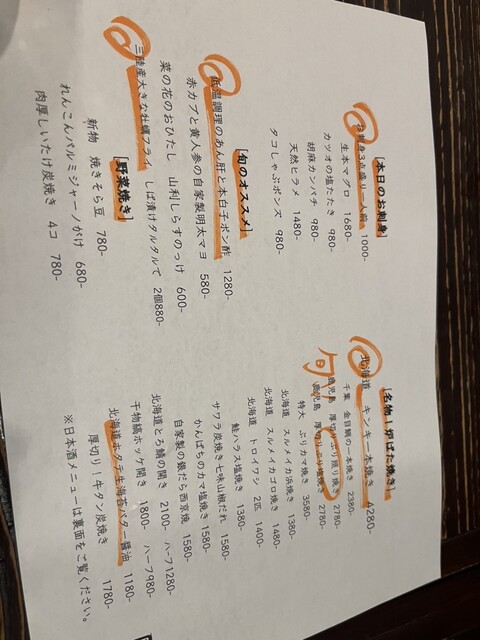 [本日のお刺身]
お刺身3点盛り一人前 1000-
生本マグロ 1680-
カツオの塩たたき 980-
胡麻カンパチ 980-
天然ヒラメ 1480-
タコしゃぶポンズ 980-
[旬のオススメ]
低温調理のあん肝と本白子ポン酢 1280-
赤カブと黄人参の自家製明太マヨ 580-
菜の花のおひたし 山利しらすのっけ 600-
三陸産大きな牡蠣フライ しば漬けタルタルで 2個880-
[野菜焼き]
新物 焼きそら豆 780-
れんこんパルミジャーノがけ 680-
肉厚しいたけ炭焼き 4コ 780-
[名物!炉ばた焼き]
北海道 キンキ一本焼き 4280-
千葉 金目鯛の一本焼き 2380-
旬
鹿児島 厚切りぶり照り焼き 2780-
鹿児島 厚切りぶり塩焼き 2780-
特大 ぶりカマ焼き 3580-
北海道 スルメイカ浜焼き 1380-
北海道 スルメイカゴロ焼き 1480-
北海道 トロイワシ 2匹 1400-
鮭ハラス塩焼き 1380-
サワラ炭焼き七味山椒だれ 1580-
かんぱちのカマ塩焼き 1580-
自家製の銀だら西京焼 1580-
北海道とろ鯖の開き 2100- ハーフ1280-
干物縞ホッケ開き 1800- ハーフ980-
北海道ホタテ生海苔バター醤油 1180-
厚切り!牛タン炭焼き 1780-
※日本酒メニューは裏面をご覧ください。